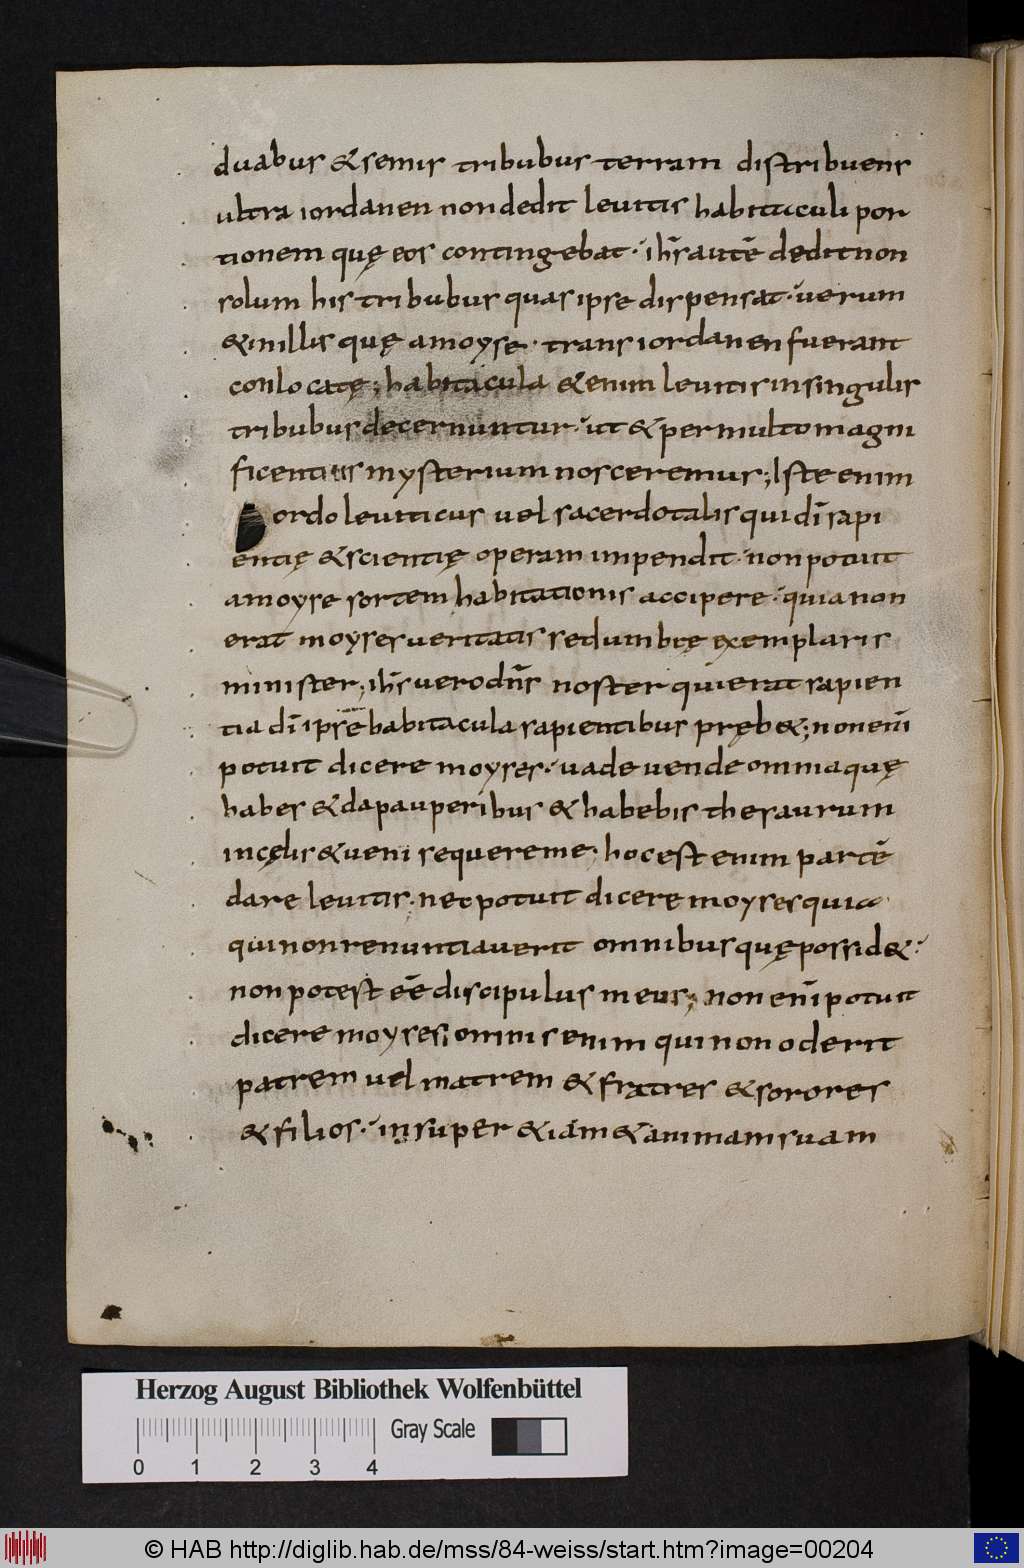 duabus & semis tribubus terram distribuens
ultra iordanen non dedit leuitis habitaculi por
tionem quę eos contingebat· ih̅s aute̅ dedit non
solum his tribubus quas ipse dispensat· uerum
& in illis quę a moyse· trans iordanen fuerant
conlocatę; habitacula &enim leuitis in singulis
tribubus decernuntur· ut & per multo magni
ficentius mysterium nosceremus; Iste enim
ordo leuiticus uel sacerdotalis qui di̅ sapi
entię & scientię operam impendit· non potuit
a moyse sortem habitationis accipere· quia non
erat moyses ueritatis sed umbrę exemplaris
minister; ih̅s uero dn̅s noster qui erat sapien
tia di̅ ipse habitacula sapientibus pręb&; non eni̅
potuit dicere moyses· uade uende omnia quę
habes & da pauperibus & habebis thesaurum
in cęlis & ueni sequere me· hoc est enim parte̅
dare leuitis· nec potuit dicere moyses quia
qui non renuntiauerit omnibus quę possid&·
non potest ee̅ discipulus meus; non eni̅ potuit
dicere moyses; omnis enim qui non oderit
patrem uel matrem & fratres & sorores
& filios· insuper &iam & animam suam
Herzog August Bibliothek Wolfenbüttel
Gray Scale
0 1 2 3 4
© HAB http://diglib.hab.de/mss/84-weiss/start.htm?image=00204